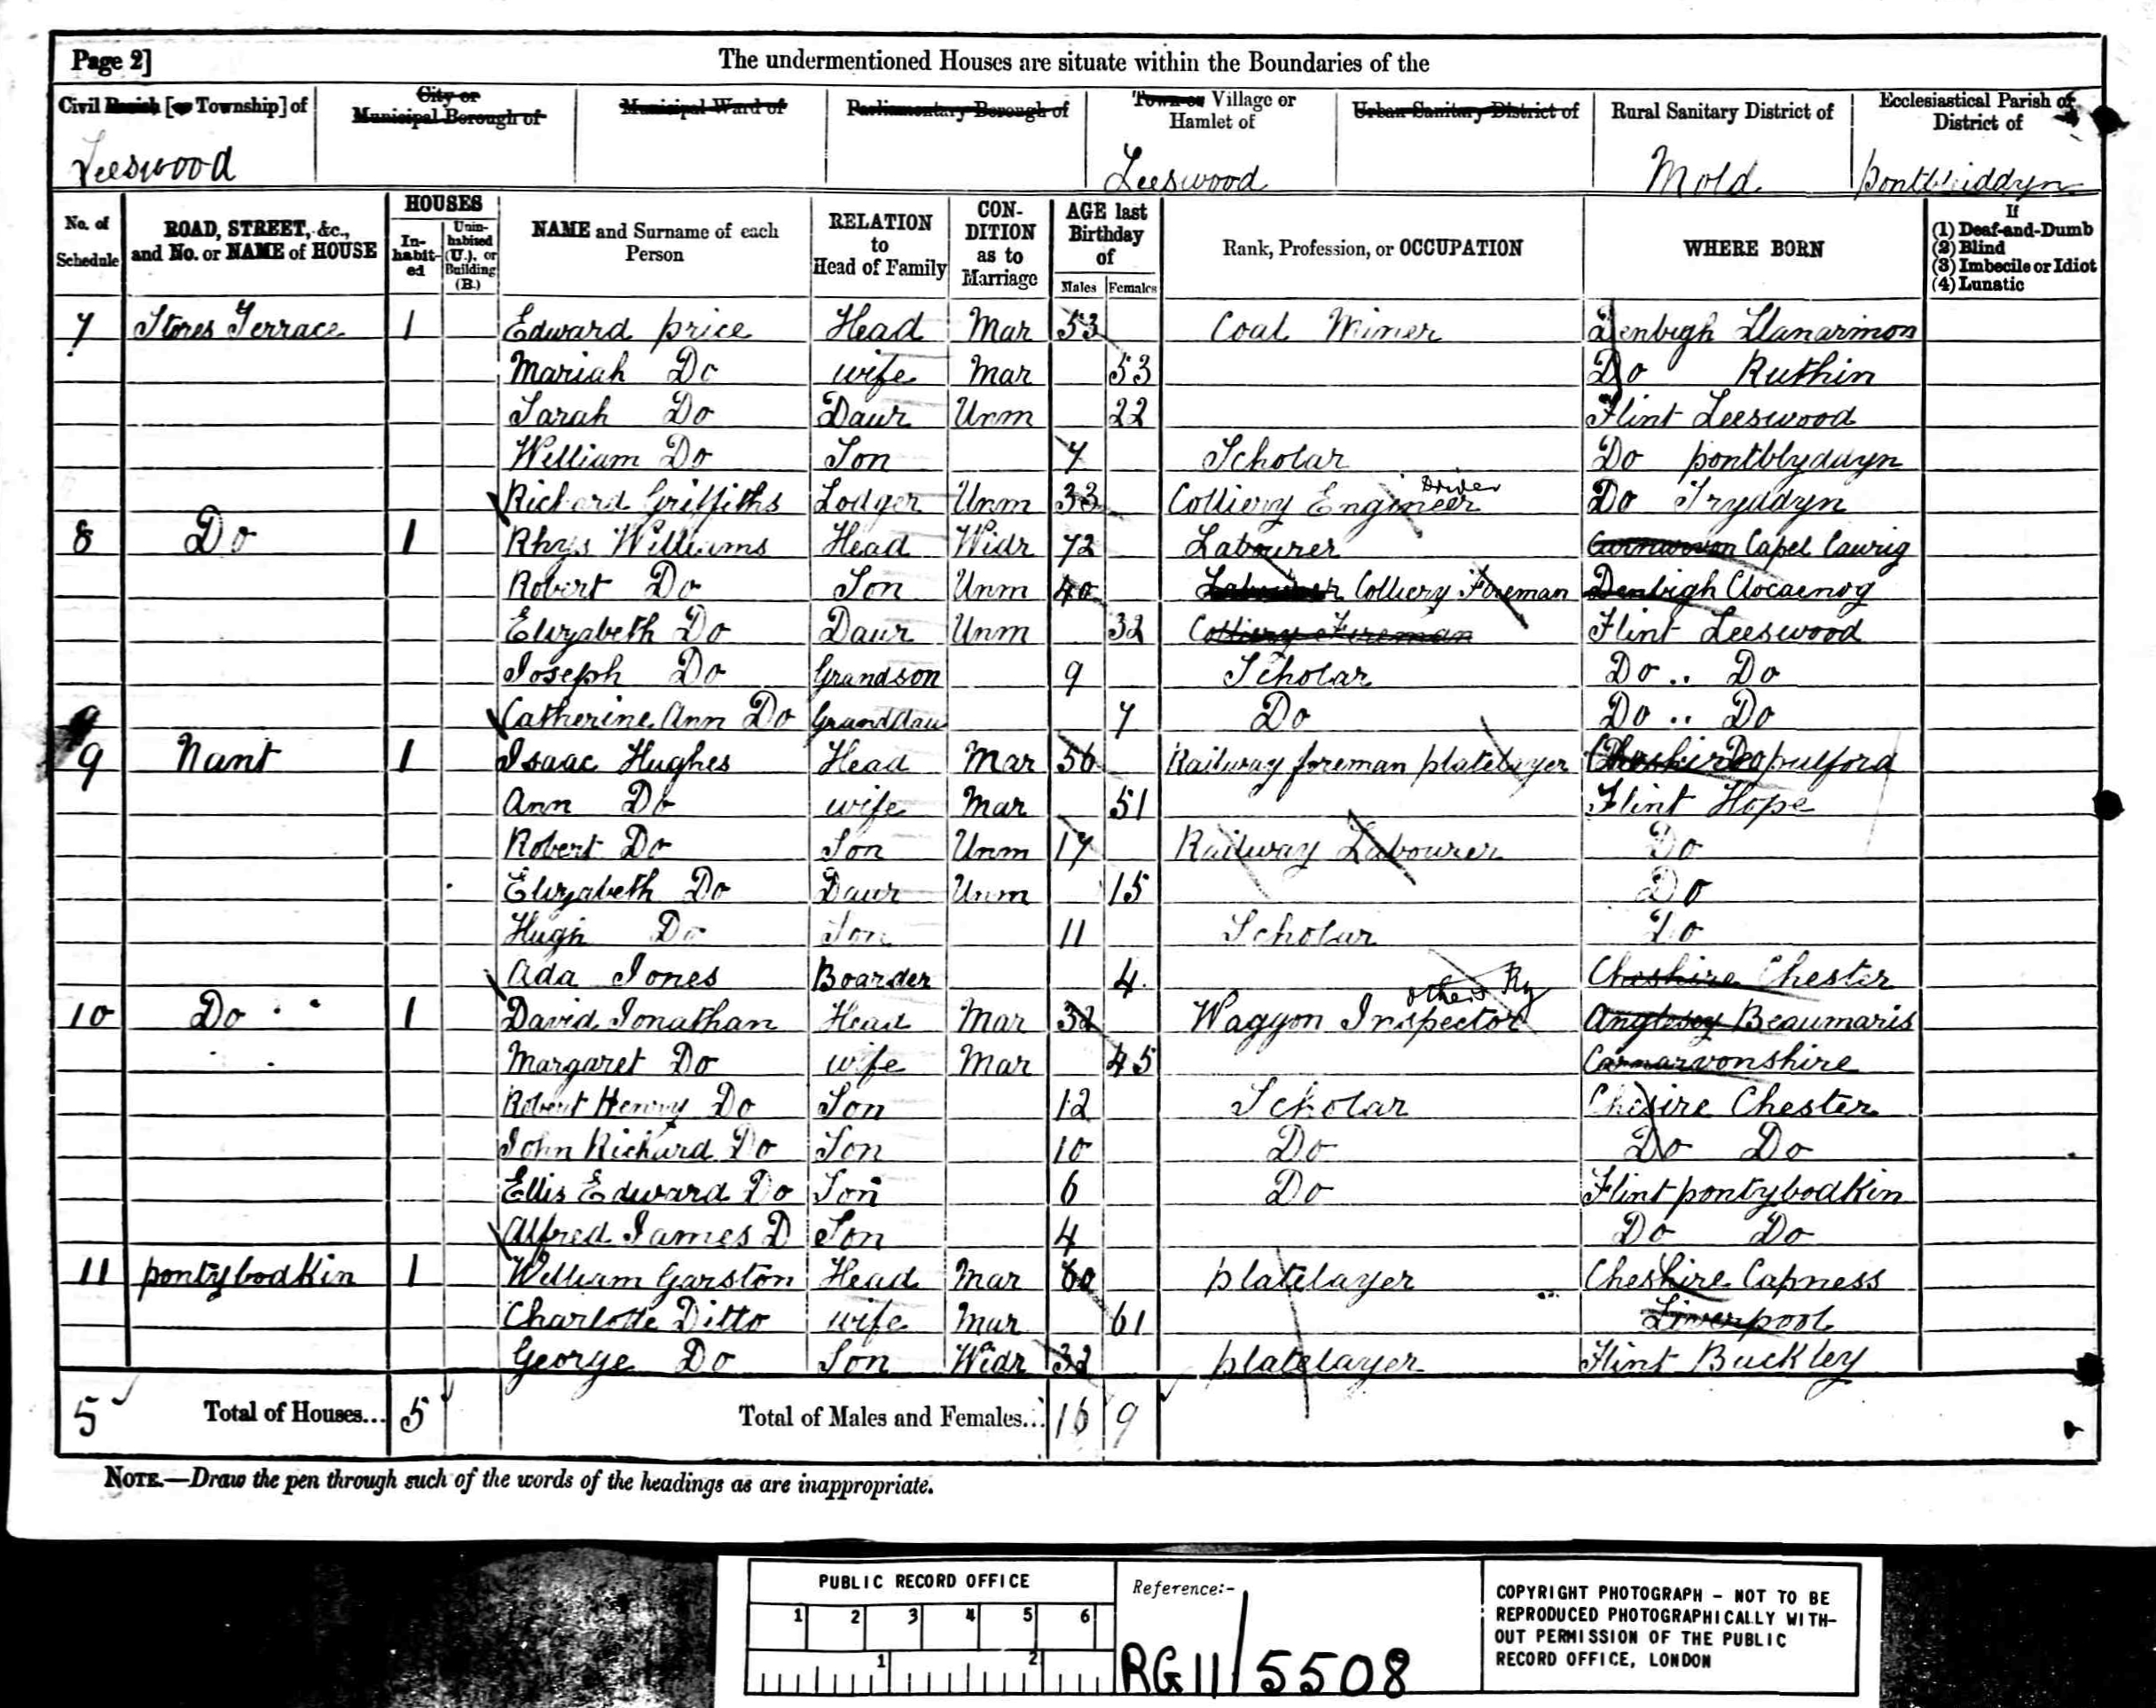 Page 2] The undermentioned Houses are situate within the Boundaries of the
Civil Parish [or Township] of
City or Municipal Borough of
Municipal Ward of
Parliamentary Borough of
Town or Village or Hamlet of
Urban Sanitary District of
Rural Sanitary District of
Ecclesiastical Parish of District of
Leeswood Leeswood Mold pontbleiddyn
No. of Schedule
ROAD, STREET, &c., and No. or NAME of HOUSE
HOUSES
In-habit-ed
Unin-habited (U.), or Building (B.)
NAME and Surname of each Person
RELATION to Head of Family
CON-DITION as to Marriage
AGE last Birthday of
Males Females
Rank, Profession, or OCCUPATION
WHERE BORN
If
(1) Deaf-and-Dumb
(2) Blind
(3) Imbecile or Idiot
(4) Lunatic
7 Stores Terrace 1 Edward price Head Mar 53 Coal Miner Denbigh Llanarmon
Mariah Do wife Mar 53 Do Ruthin
Sarah Do Daur Unm 22 Flint Leeswood
William Do Son 7 Scholar Do pontblyddyn
Richard Griffiths Lodger Unm 33 Colliery Engineer Driver Do Tryddyn
8 Do 1 Rhys Williams Head Widr 72 Labourer Carnarvon Capel Caurig
Robert Do Son Unm 40 Labourer Colliery Foreman Denbigh Clocaenog
Elizabeth Do Daur Unm 32 Colliery Fireman Flint Leeswood
Joseph Do Grandson 9 Scholar Do .. Do
Catherine Ann Do Granddau 7 Do Do .. Do
9 Nant 1 Isaac Hughes Head Mar 56 Railway foreman platelayer Cheshire pulford
Ann Do wife Mar 51 Flint Hope
Robert Do Son Unm 17 Railway Labourer Do
Elizabeth Do Daur Unm 15 Do
Hugh Do Son 11 Scholar Do
Ada Jones Boarder 4 Cheshire Chester
10 Do 1 David Jonathan Head Mar 32 Waggon Inspector others Ry Anglesey Beaumaris
Margaret Do wife Mar 45 Carnarvonshire
Robert Henry Do Son 12 Scholar Chesire Chester
John Richard Do Son 10 Do Do Do
Ellis Edward Do Son 6 Do Flint pontybodkin
Alfred James D Son 4 Do Do
11 pontybodkin 1 William Garston Head Mar 60 platelayer Cheshire Capness
Charlotte Ditto wife Mar 61 Liverpool
George Do Son Widr 32 platelayer Flint Buckley
5 Total of Houses... 5 Total of Males and Females... 16 9
NOTE.—Draw the pen through such of the words of the headings as are inappropriate.
PUBLIC RECORD OFFICE
1 2 3 4 5 6
1 2
Reference:-
RG 11/5508
COPYRIGHT PHOTOGRAPH - NOT TO BE
REPRODUCED PHOTOGRAPHICALLY WITH-
OUT PERMISSION OF THE PUBLIC
RECORD OFFICE, LONDON